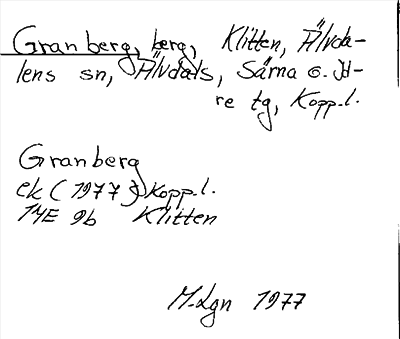 Granberg, berg, Klitten, Älvda-
lens sn, Älvdals, Särna o. Id-
re tg, Kopp.l.
Granberg
ek (1977) Kopp.l.
14E 9b Klitten
M.Lgn 1977